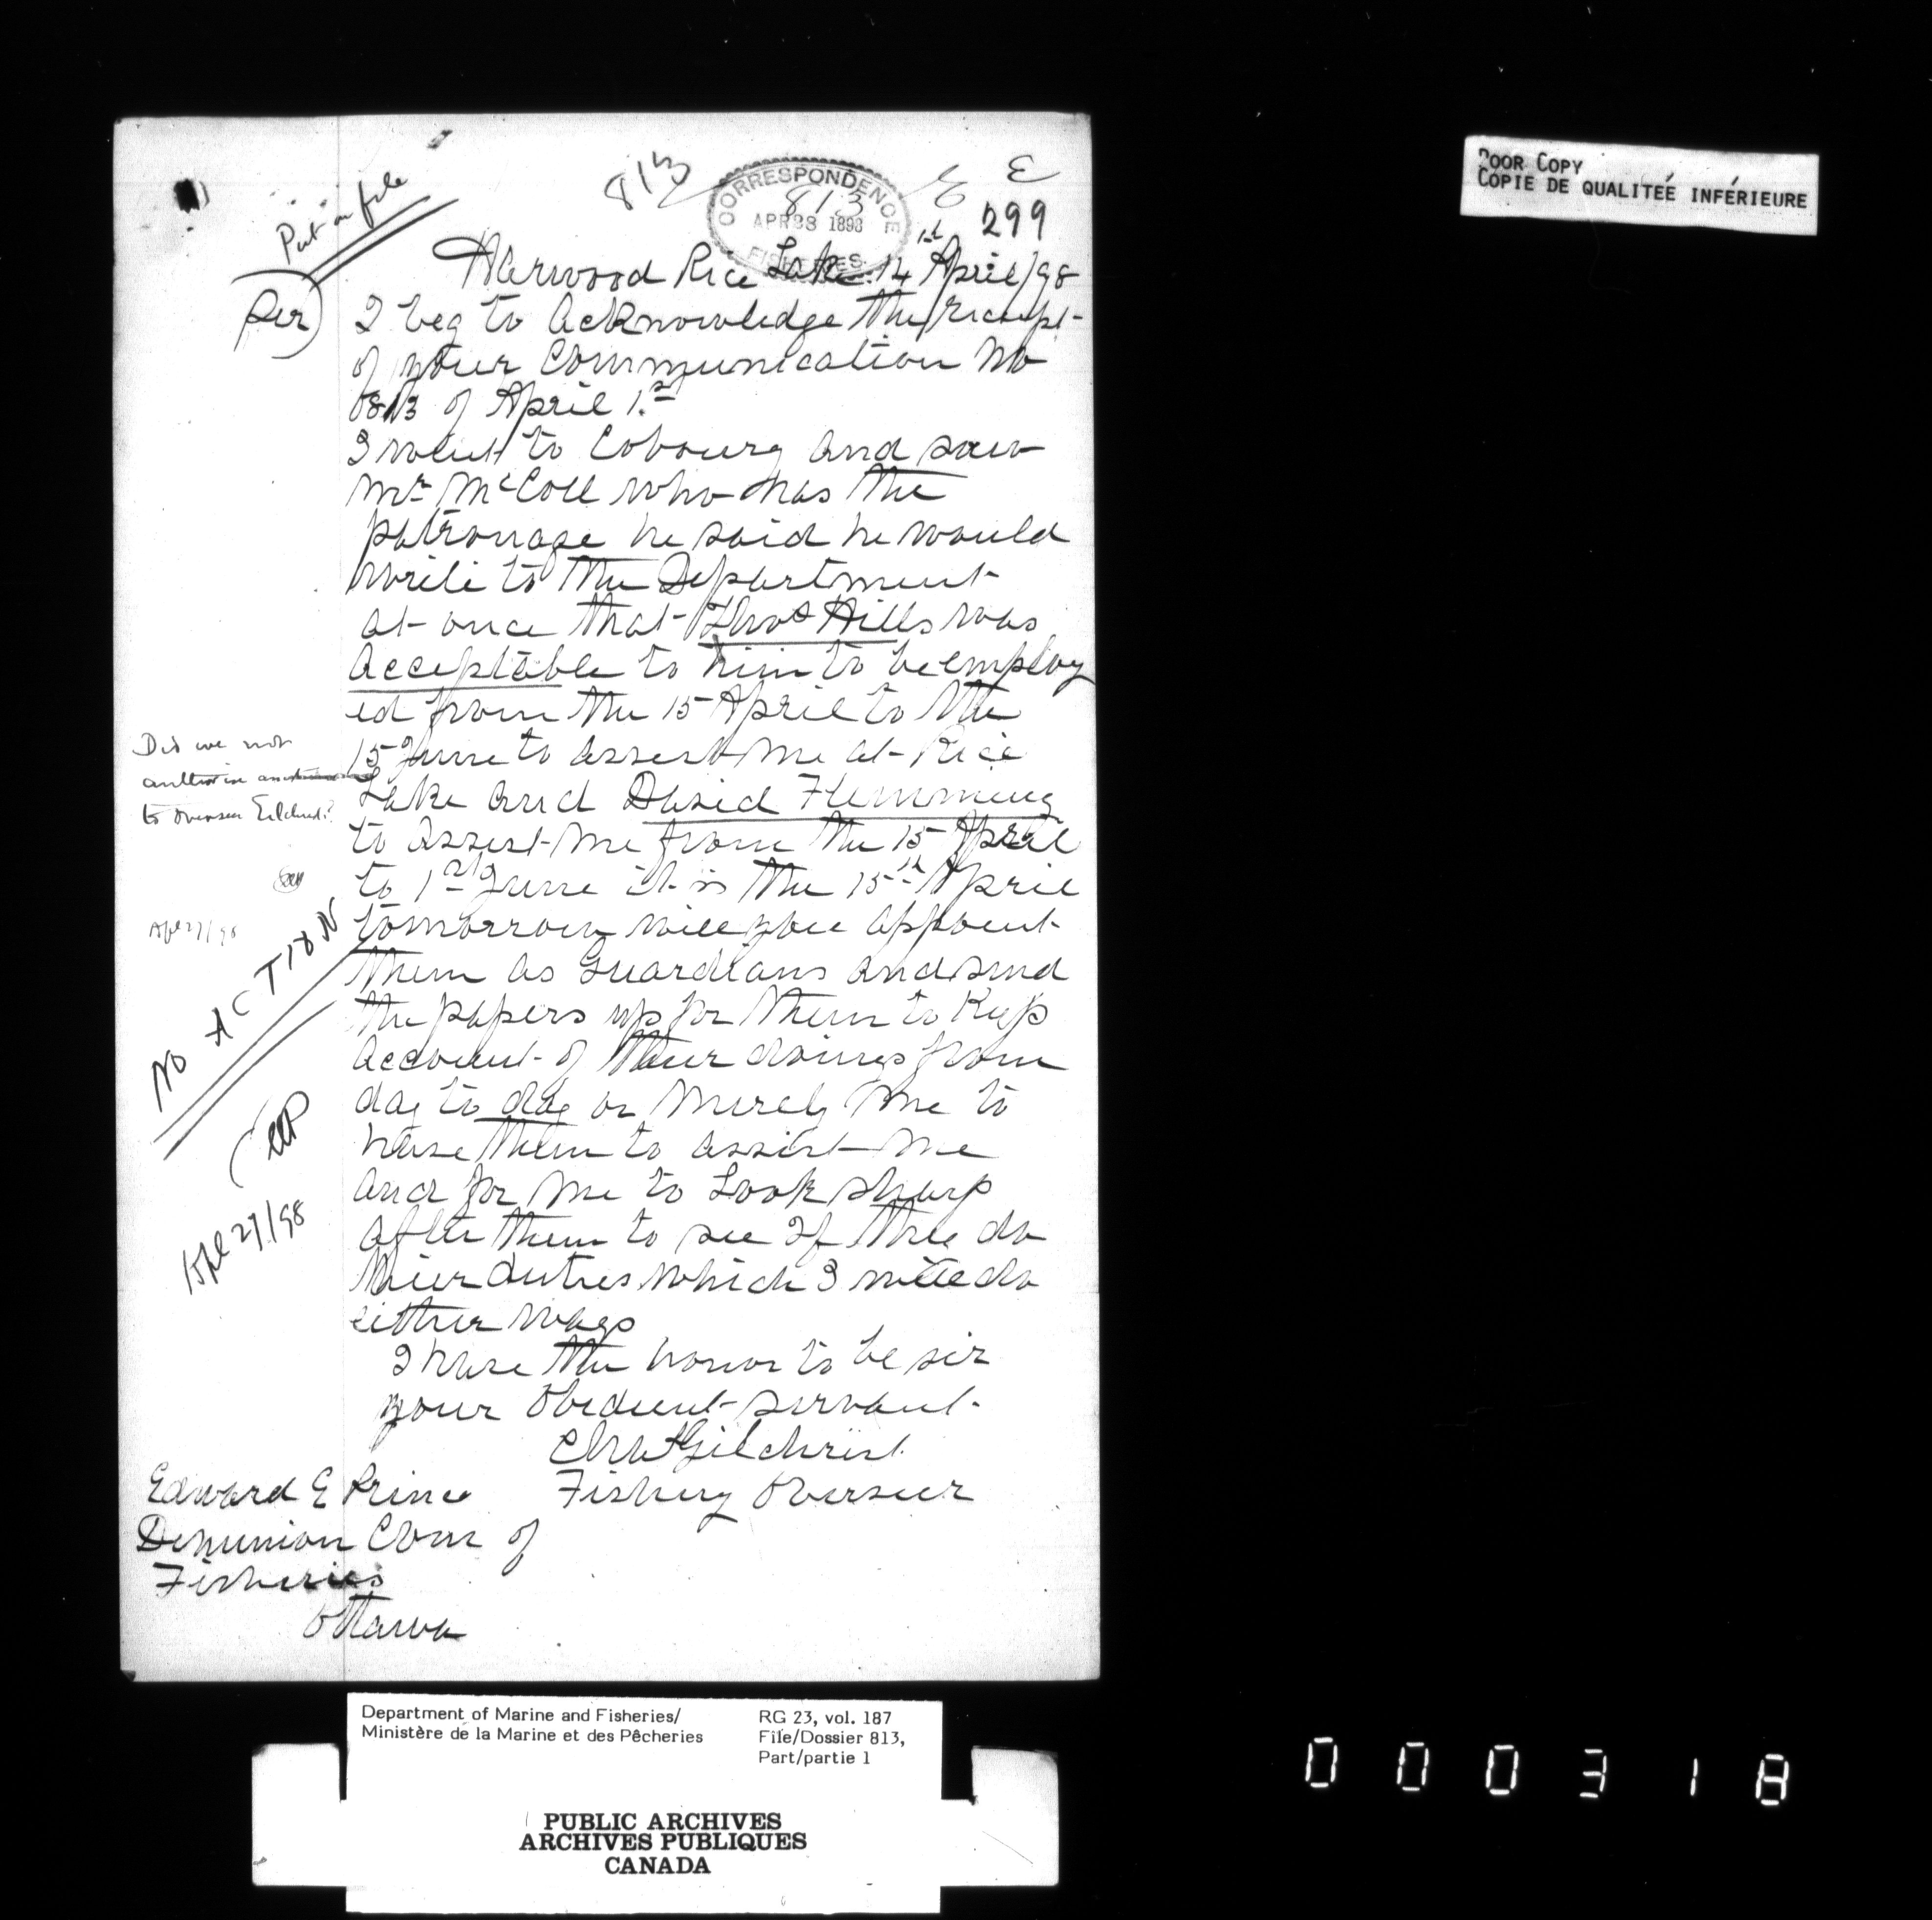 Put on file
813
CORRESPONDENCE
813
APR 28 1898
FISHERIES
E
299
Harwood Rice Lake 14th April/98
Sir
I beg to acknowledge the receipt
of your communication No
813 of April 1st
I went to Cobourg and saw
Mr McColl who has the
patronage he said he would
write to the Department
at once that Thos Hills was
acceptable to him to be employ
ed from the 15 April to the
15 June to assist me at Rice
Lake and David Flemming
to assist me from the 15 April
to 1st June it is the 15th April
tomorrow will you appoint
them as Guardians and send
the papers up for them to Keep
account of their doings from
day to day or merely me to
have them to assist me
and for me to Look sharp
after them to see If they do
thier duties which I will do
either ways
I have the honor to be sir
your obedient servant
Chas Gilchrist
Fishery Overseer
Edward E Prince
Dominion Com of
Fisheries
Ottawa
Did we not
authorise
to overseer Gilchrist?
Apl 27/98
NO ACTION
EEP
Apl 27/98
POOR COPY
COPIE DE QUALITEÉ INFÉRIEURE
Department of Marine and Fisheries/
Ministère de la Marine et des Pêcheries
RG 23, vol. 187
File/Dossier 813,
Part/partie 1
PUBLIC ARCHIVES
ARCHIVES PUBLIQUES
CANADA
000318